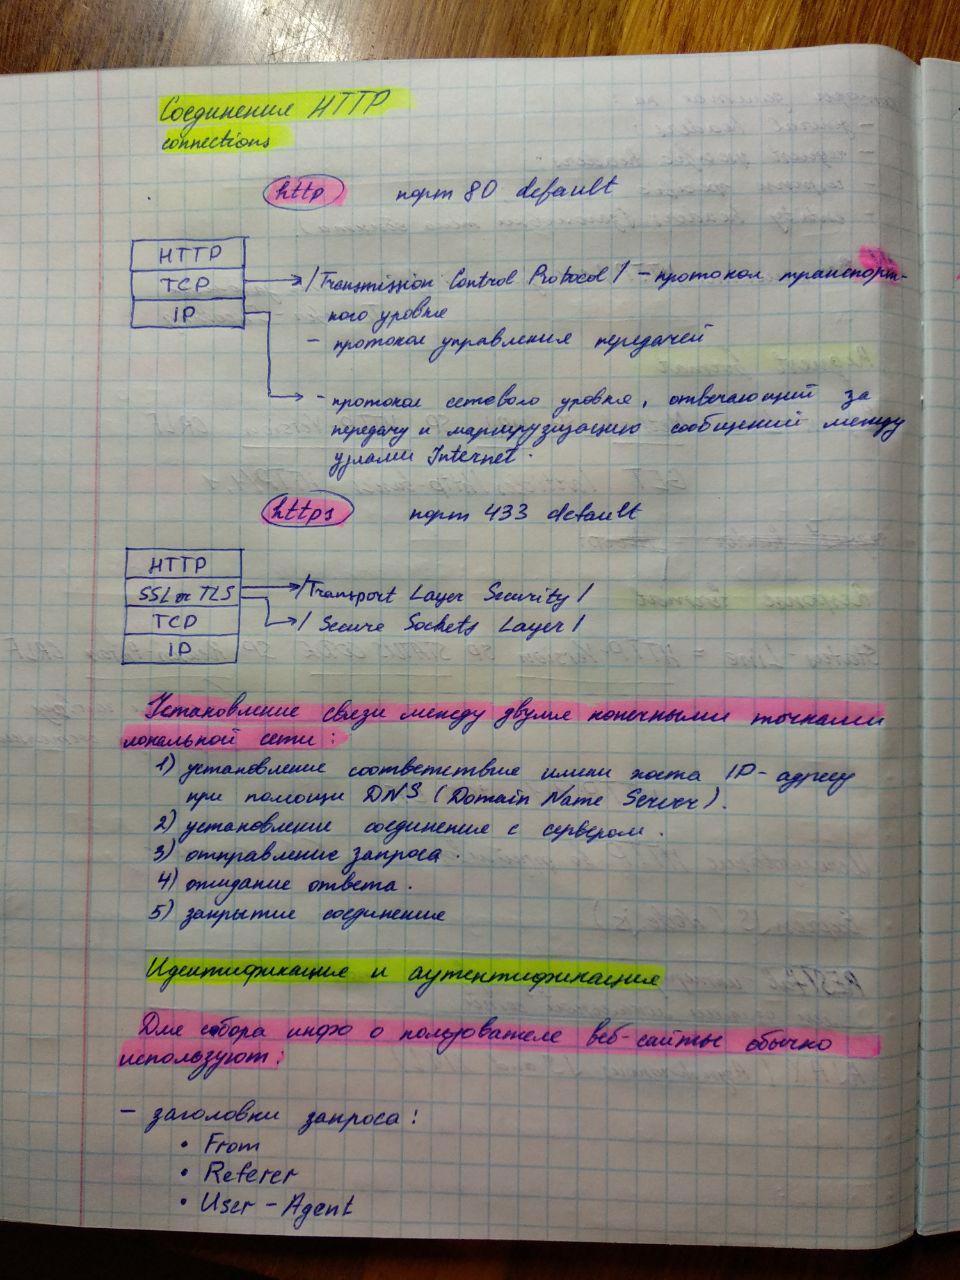 Соединения HTTP
connections
http порт 80 default
HTTP
TCP /Transmission Control Protocol/ - протокол транспорт-
ного уровня
IP
- протокол управления передачей
- протокол сетевого уровня, отвечающий за
передачу и маршрутизацию сообщений между
узлами Internet.
https порт 433 default
HTTP
SSL or TLS /Transport Layer Security/
/Secure Sockets Layer/
TCP
IP
Установление связи между двумя конечными точками
локальной сети:
1) установление соответствие имени хоста IP-адресу
при помощи DNS (Domain Name Server).
2) установление соединение с сервером.
3) отправление запроса.
4) ожидание ответа.
5) закрытие соединение
Идентификация и аутентификация
Для сбора инфо о пользователе веб-сайты обычно
используют:
- заголовки запроса:
• From
• Referer
• User-Agent